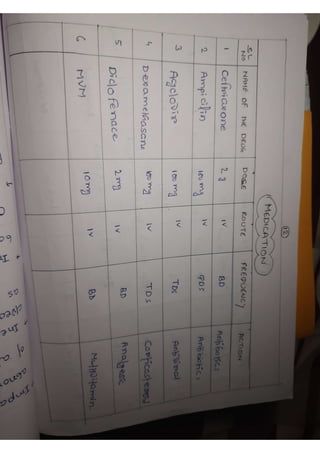 (15)
MEDICATION
SL NO NAME OF THE DRUG DOSE ROUTE FREQUENCY ACTION
1 Ceftriaxone 2g IV BD Antibiotics
2 Ampicilin 100 mg IV TDS Antibiotics
3 Acyclovir 100 mg IV TDS Antiviral
4 Dexamethasam 100 mg IV TDS Corticosteroid
5 Diclofenace 2 mg IV BD Analgesic
6 MVM 10 mg IV BD Multivitamin